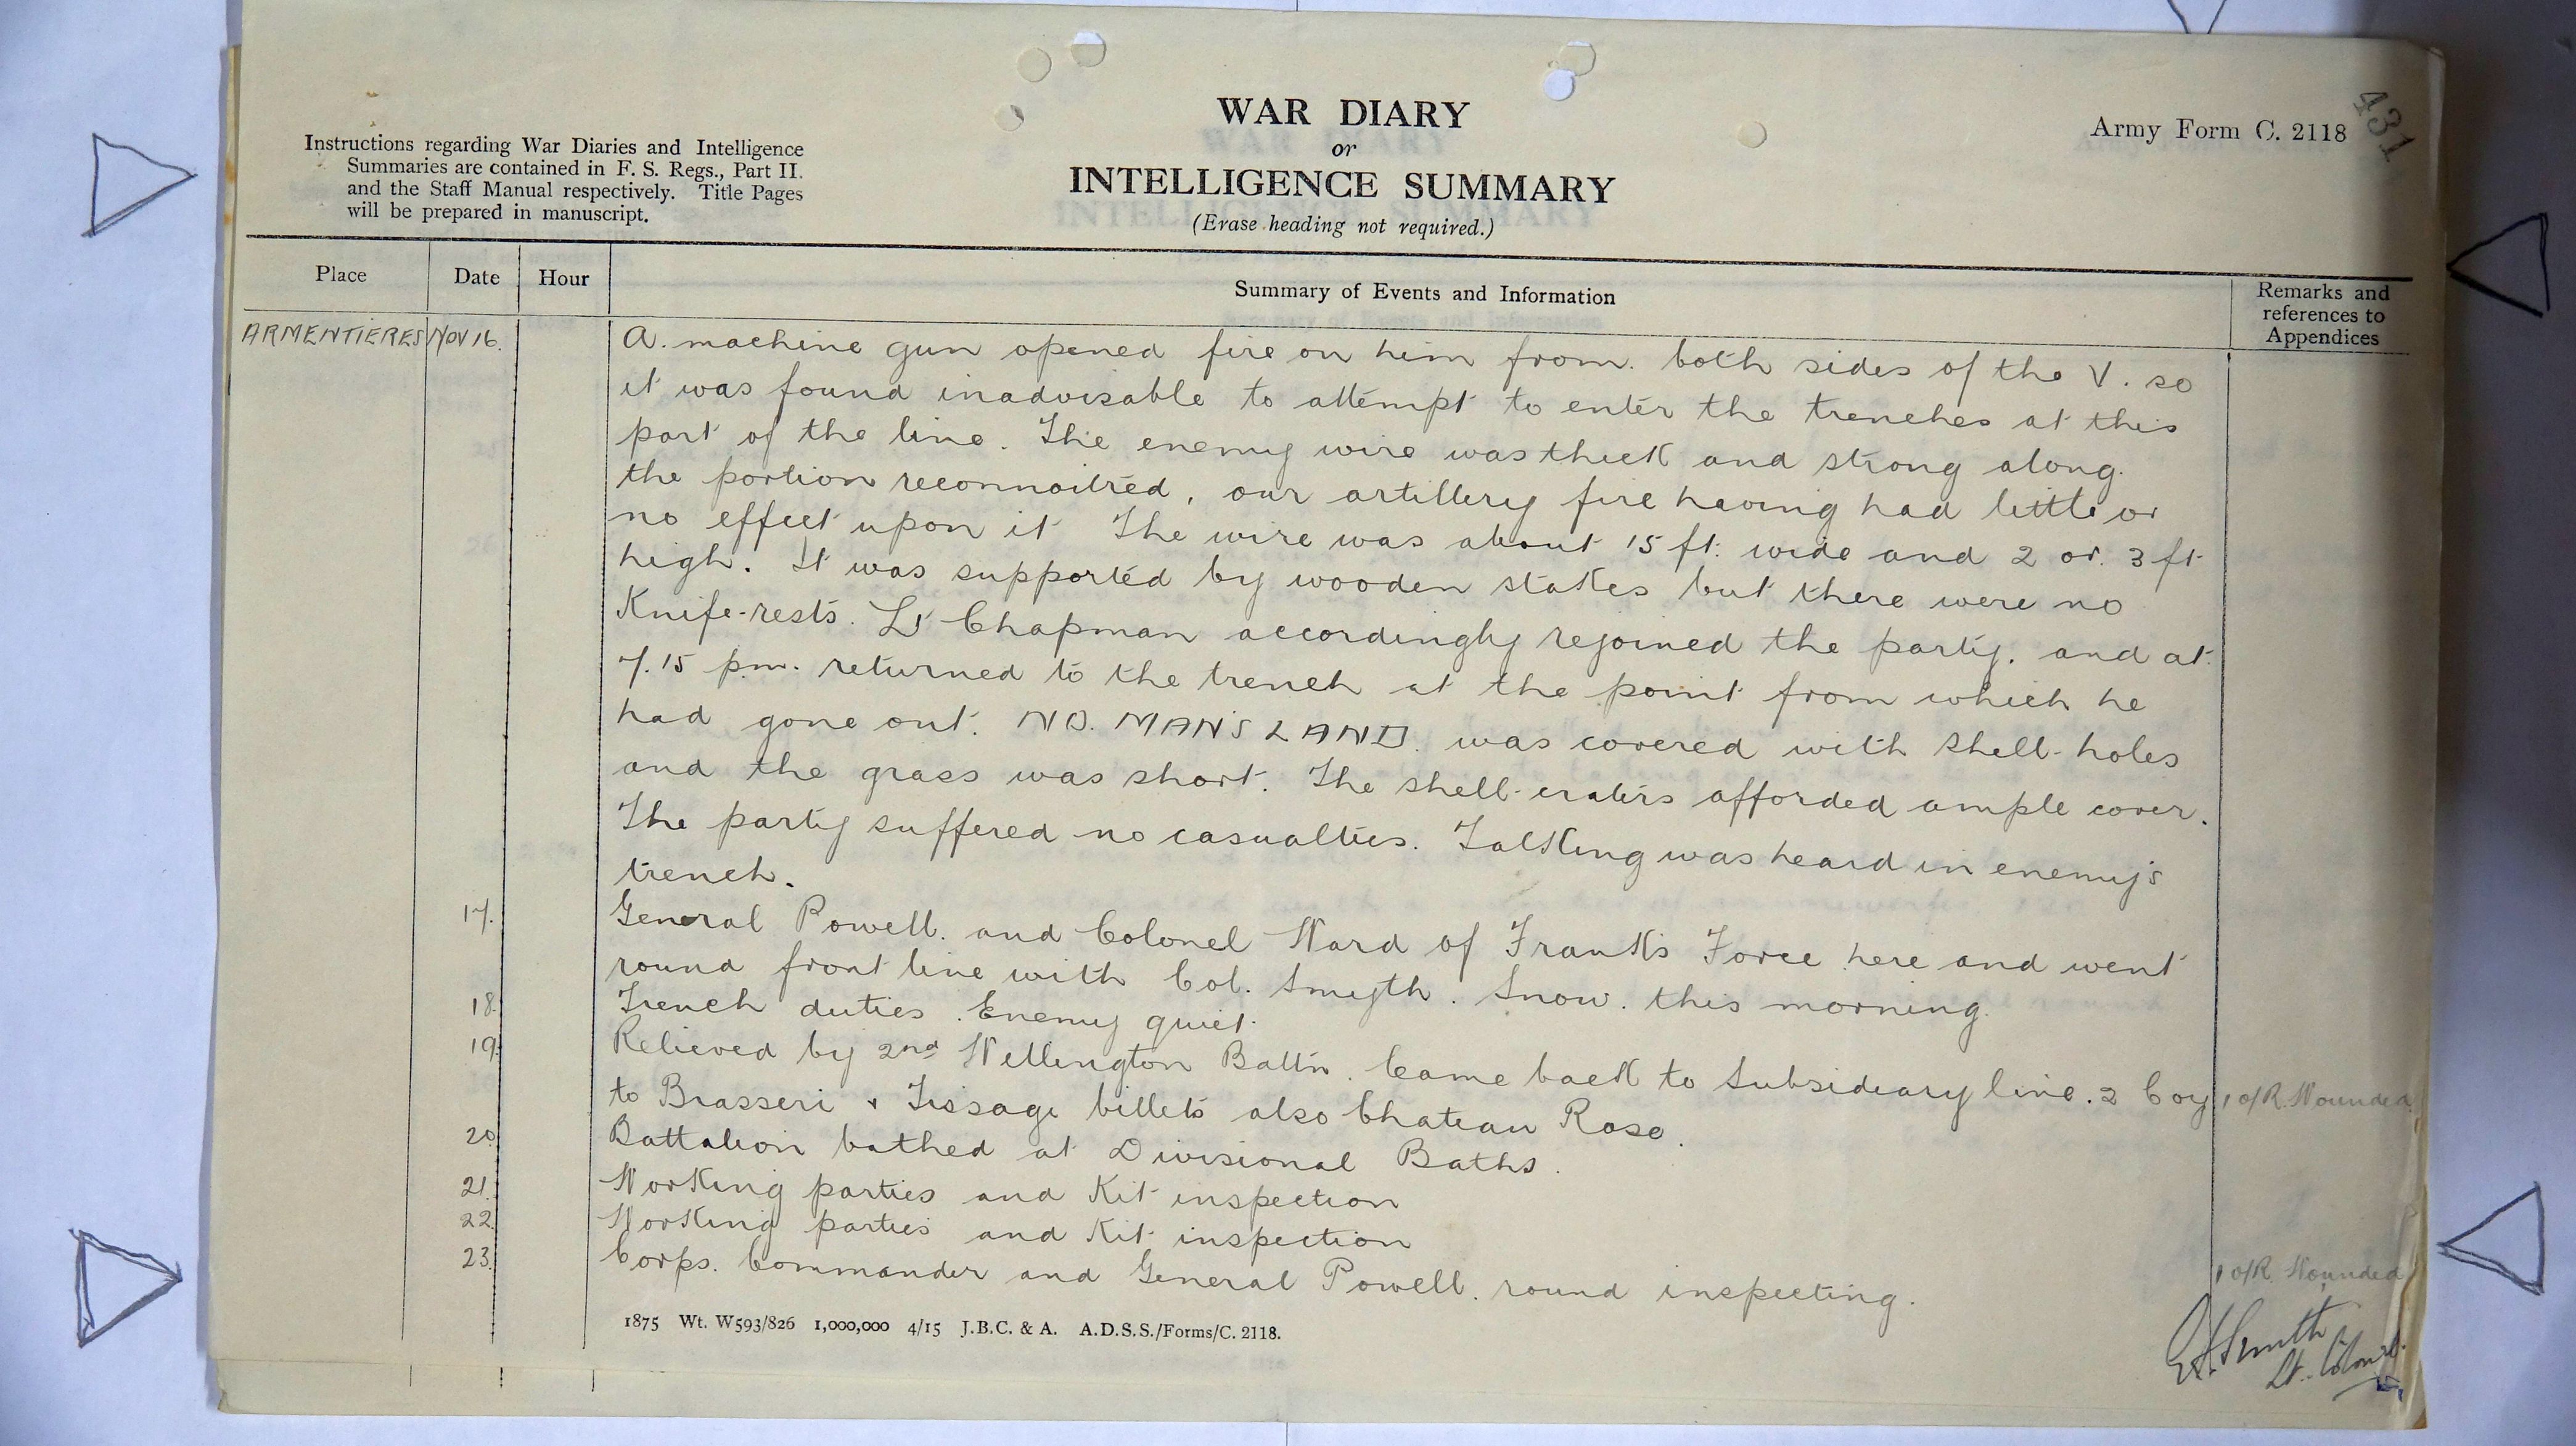 431
Army Form C. 2118
WAR DIARY
or
INTELLIGENCE SUMMARY
(Erase heading not required.)
Instructions regarding War Diaries and Intelligence
Summaries are contained in F. S. Regs., Part II.
and the Staff Manual respectively. Title Pages
will be prepared in manuscript.
Place Date Hour Summary of Events and Information Remarks and
references to
Appendices
ARMENTIERES NOV 16. A. machine gun opened fire on him from. both sides of the V. so
it was found inadvisable to attempt to enter the trenches at this
part of the line. The enemy wire was thick and strong along.
the portion reconnoitred, our artillery fire having had little or
no effect upon it The wire was about 15 ft. wide and 2 or. 3 ft
high. It was supported by wooden stakes but there were no
Knife-rests. Lt Chapman accordingly rejoined the party. and at
7.15 p.m. returned to the trench at the point from which he
had gone out. NO. MAN'S LAND. was covered with shell-holes
and the grass was short. The shell-craters afforded ample cover.
The party suffered no casualties. Talking was heard in enemy's
trench.
17. General Powell. and Colonel Ward of Franks Force here and went
round front line with Col. Smyth. Snow. this morning.
18. Trench duties. Enemy quiet.
19. Relieved by 2nd Wellington Battn. Came back to Subsidiary line. 2 Coy 1 o/R. Wounded
to Brasseri & Tissage billets also Chateau Rose.
20 Battalion bathed at Divisional Baths.
21. Working parties and Kit inspection
22. Working parties and Kit inspection
23. Corps. Commander and General Powell. round inspecting. 1 o/R. Wounded
1875 Wt. W593/826 1,000,000 4/15 J.B.C. & A. A.D.S.S./Forms/C. 2118.
Lt. Colonel